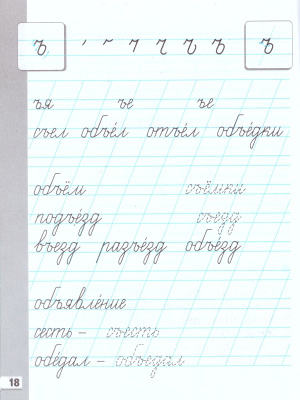 ъ ъ ъ
ъя ъе ъе
съел объе́л отъе́л объе́дки
объём съёмки
подъе́зд съезд
въезд разъе́зд объе́зд
объявле́ние
сесть – съесть
обе́дал – объедал
18